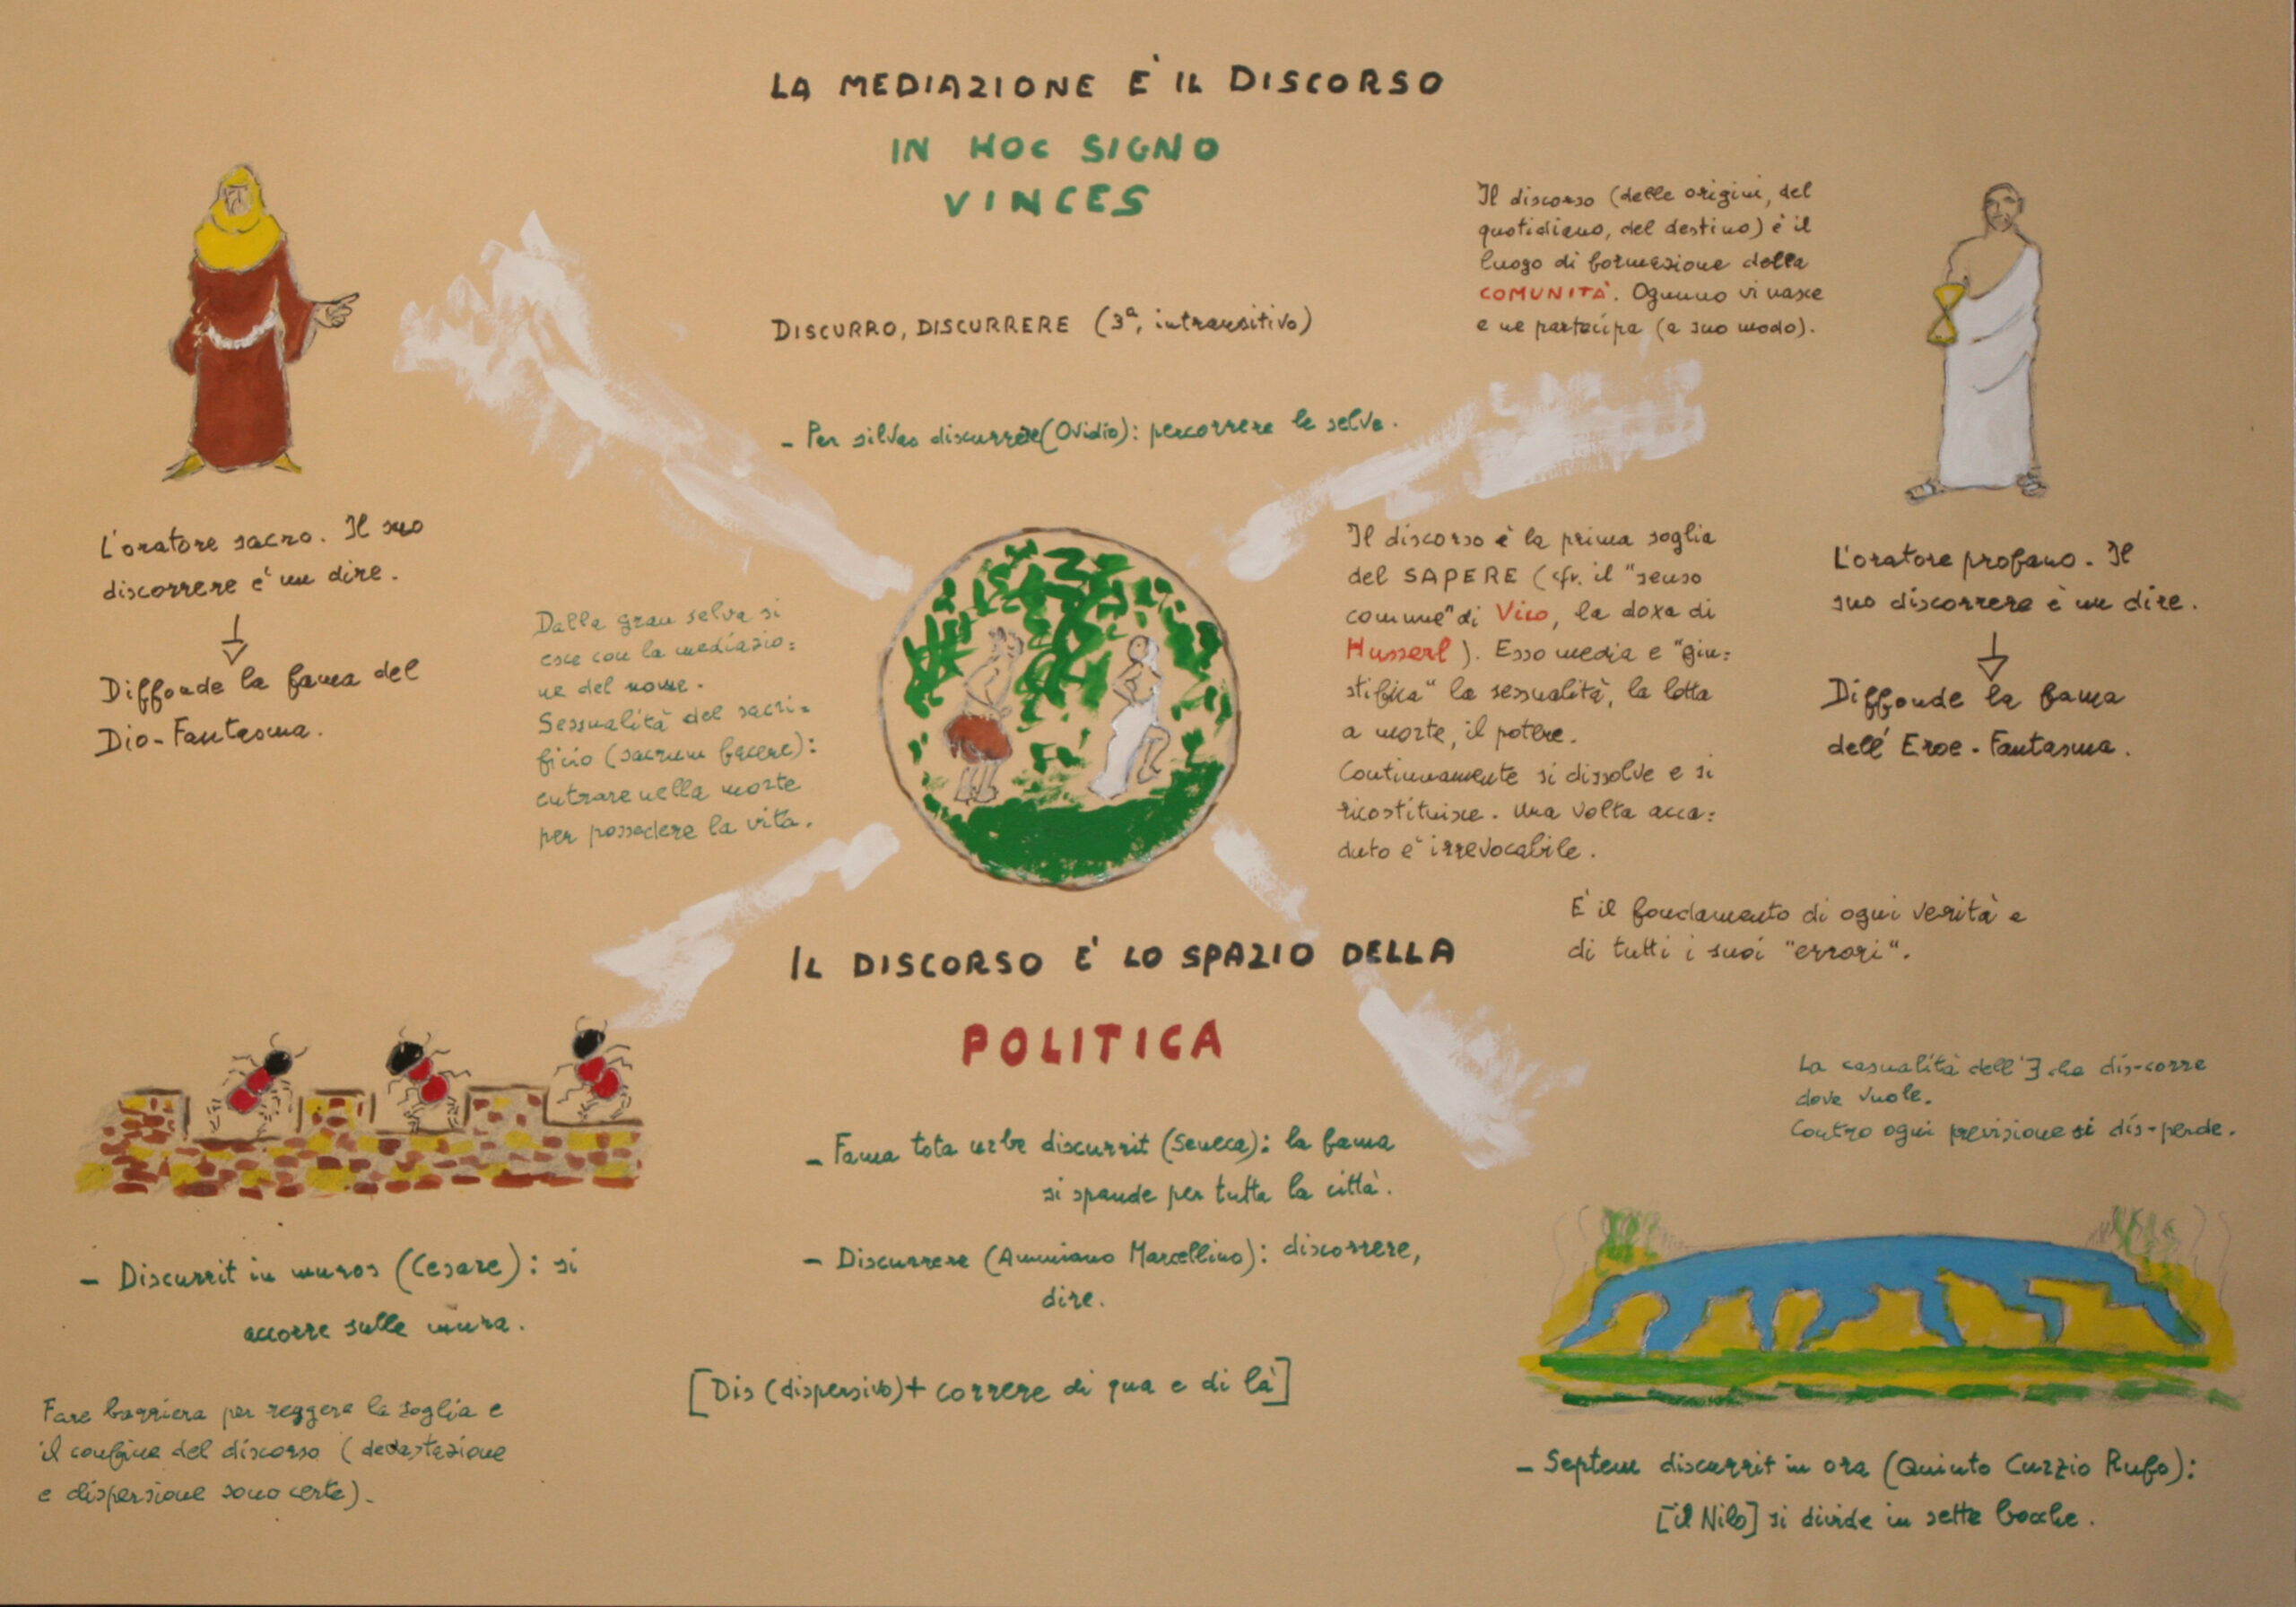 LA MEDIAZIONE E' IL DISCORSO
IN HOC SIGNO
VINCES
Il discorso (delle origini, del
quotidiano, del destino) è il
luogo di formazione della
COMUNITÀ. Ognuno vi nasce
e ne partecipa (a suo modo).
DISCURRO, DISCURRERE (3ª, intransitivo)
- Per silvas discurrere (Ovidio): percorrere le selve.
L'oratore sacro. Il suo
discorrere è un dire.
Diffonde la fama del
Dio-Fantasma.
Dalla gran selva si
esce con la mediazio=
ne del nome.
Sessualità del sacri=
ficio (sacrum facere):
entrare nella morte
per possedere la vita.
Il discorso è la prima soglia
del SAPERE (cfr. il "senso
comune" di Vico, la doxa di
Husserl). Esso media e "giu=
stifica" la sessualità, la lotta
a morte, il potere.
Continuamente si dissolve e si
ricostituisce. Una volta acca=
duto è irrevocabile.
È il fondamento di ogni verità e
di tutti i suoi "errori".
L'oratore profano. Il
suo discorrere è un dire.
Diffonde la fama
dell'Eroe-Fantasma.
IL DISCORSO E' LO SPAZIO DELLA
POLITICA
- Fama tota urbe discurrit (Seneca): la fama
si spande per tutta la città.
- Discurrere (Ammiano Marcellino): discorrere,
dire.
[Dis (dispersivo) + correre di qua e di là]
- Discurrit in muros (Cesare): si
accorre sulle mura.
Fare barriera per reggere la soglia e
il confine del discorso (devastazione
e dispersione sono certe).
La casualità dell'∃ che dis-corre
dove vuole.
Contro ogni previsione si dis-perde.
- Septem discurrit in ora (Quinto Curzio Rufo):
[il Nilo] si divide in sette bocche.